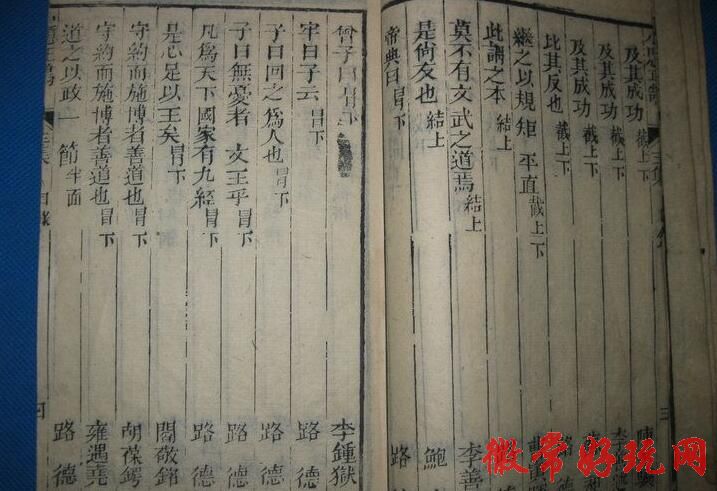 及其成功 截上下
及其成功 截上下
及其成功 截上下
比其反也 截上下
繼之以規矩 平直 截上下
此謂之本 結上
莫不有文武之道焉 結上 李善
是尙友也 結上 鮑
帝典曰 冒下 路
曾子曰 冒下 李鍾獄
牢曰子云 冒下 路德
子曰回之爲人也 冒下 路德
子曰無憂者 文王乎 冒下 路德
凡爲天下國家有九經 冒下 路德
是心足以王矣 冒下 閻敬銘
守約而施博者善道也 冒下 胡葆鍔
守約而施博者善道也 冒下 雍遇堯
道之以政 一節半面 路德
目錄
微常好玩网